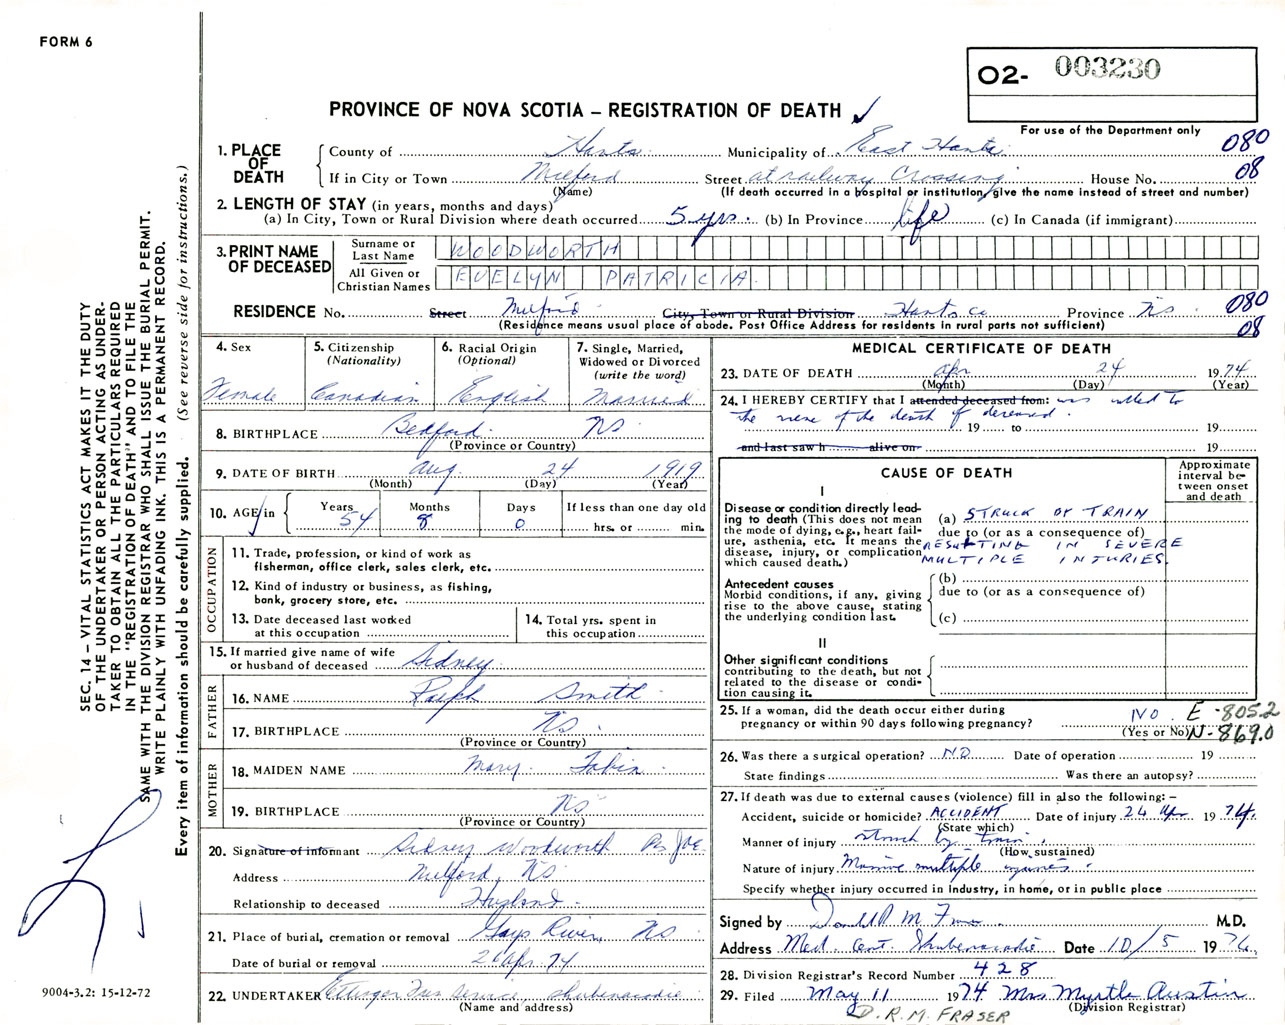 FORM 6
O2- 003230
PROVINCE OF NOVA SCOTIA – REGISTRATION OF DEATH ✓
For use of the Department only
1. PLACE OF DEATH
County of Hants Municipality of East Hants 080
If in City or Town Milford Street at railway Crossing House No. 08
(Name) (If death occurred in a hospital or institution, give the name instead of street and number)
2. LENGTH OF STAY (in years, months and days)
(a) In City, Town or Rural Division where death occurred 5 yrs. (b) In Province life (c) In Canada (if immigrant)
3. PRINT NAME OF DECEASED
Surname or Last Name WOODWORTH
All Given or Christian Names EVELYN PATRICIA
RESIDENCE No. Street Milford City, Town or Rural Division Hants Co Province NS 080
(Residence means usual place of abode. Post Office Address for residents in rural parts not sufficient) 08
4. Sex Female
5. Citizenship (Nationality) Canadian
6. Racial Origin (Optional) English
7. Single, Married, Widowed or Divorced (write the word) Married
8. BIRTHPLACE Bedford NS
(Province or Country)
9. DATE OF BIRTH Aug. 24 1919
(Month) (Day) (Year)
10. AGE in Years 54 Months 8 Days 0 If less than one day old hrs. or min.
OCCUPATION
11. Trade, profession, or kind of work as fisherman, office clerk, sales clerk, etc.
12. Kind of industry or business, as fishing, bank, grocery store, etc.
13. Date deceased last worked at this occupation
14. Total yrs. spent in this occupation
15. If married give name of wife or husband of deceased Sidney
FATHER
16. NAME Ralph Smith
17. BIRTHPLACE NS
(Province or Country)
MOTHER
18. MAIDEN NAME Mary
19. BIRTHPLACE NS
(Province or Country)
20. Signature of informant Sidney Woodworth
Address Milford, NS
Relationship to deceased Husband
21. Place of burial, cremation or removal Gays River NS
Date of burial or removal Apr. 74
22. UNDERTAKER Ettinger Fun Service, Shubenacadie
(Name and address)
MEDICAL CERTIFICATE OF DEATH
23. DATE OF DEATH Apr 24 1974
(Month) (Day) (Year)
24. I HEREBY CERTIFY that I attended deceased from: was called to
the scene of the death of deceased.
19 to 19
and last saw h alive on 19
CAUSE OF DEATH
Approximate interval between onset and death
I
Disease or condition directly leading to death (This does not mean the mode of dying, e.g., heart failure, asthenia, etc. It means the disease, injury, or complication which caused death.)
(a) STRUCK BY TRAIN
due to (or as a consequence of)
RESULTING IN SEVERE
MULTIPLE INJURIES.
Antecedent causes
Morbid conditions, if any, giving rise to the above cause, stating the underlying condition last.
(b)
due to (or as a consequence of)
(c)
II
Other significant conditions
contributing to the death, but not related to the disease or condition causing it.
25. If a woman, did the death occur either during pregnancy or within 90 days following pregnancy? NO. E-805.2
(Yes or No) N-869.0
26. Was there a surgical operation? NO Date of operation 19
State findings Was there an autopsy?
27. If death was due to external causes (violence) fill in also the following: –
Accident, suicide or homicide? ACCIDENT Date of injury 24 Apr 1974.
(State which)
Manner of injury struck by train.
(How sustained)
Nature of injury Massive multiple injuries.
Specify whether injury occurred in industry, in home, or in public place
Signed by Donald R M Fraser M.D.
Address Med. Cent Shubenacadie Date 10/5 1974.
28. Division Registrar's Record Number 428
29. Filed May 11 1974 Mrs Myrtle Austin
(Division Registrar)
D. R. M. FRASER
SEC. 14 – VITAL STATISTICS ACT MAKES IT THE DUTY
OF THE UNDERTAKER OR PERSON ACTING AS UNDER-
TAKER TO OBTAIN ALL THE PARTICULARS REQUIRED
IN THE "REGISTRATION OF DEATH" AND TO FILE THE
SAME WITH THE DIVISION REGISTRAR WHO SHALL ISSUE THE BURIAL PERMIT.
WRITE PLAINLY WITH UNFADING INK. THIS IS A PERMANENT RECORD.
Every item of information should be carefully supplied. (See reverse side for instructions.)
9004-3.2: 15-12-72